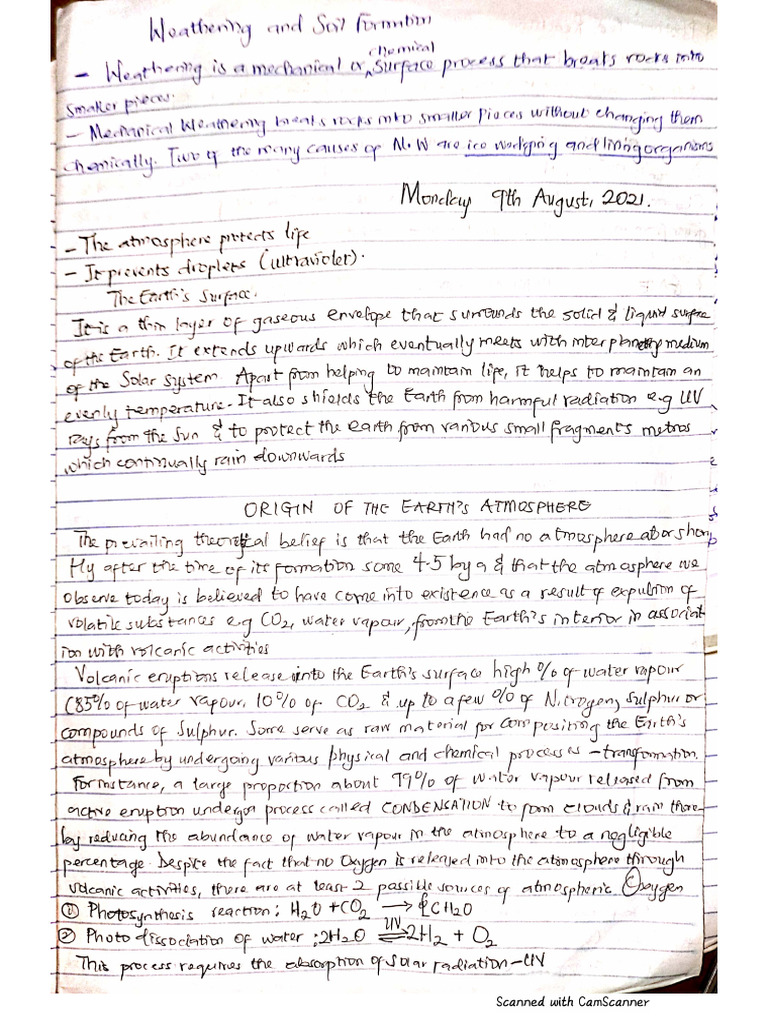 Weathering and Soil Formation
- Weathering is a mechanical or chemical surface process that breaks rocks into
smaller pieces.
- Mechanical Weathering breaks rocks into smaller pieces without changing them
chemically. Two of the many causes of M.W are ice wedging and living organisms
Monday 9th August, 2021.
- The atmosphere protects life
- It prevents droplets (ultraviolet).
The Earth's Surface.
It is a thin layer of gaseous envelope that surrounds the solid & liquid surface
of the Earth. It extends upwards which eventually meets with interplanetry medium
of the Solar System. Apart from helping to maintain life, it helps to maintain an
evenly temperature. It also shields the Earth from harmful radiation e.g UV
rays from the Sun & to protect the earth from various small fragments metros
which continually rain downwards
ORIGIN OF THE EARTH'S ATMOSPHERE
The prevailing theoretical belief is that the Earth had no atmosphere at or shor
tly after the time of its formation some 4.5 by a & that the atmosphere we
observe today is believed to have come into existence as a result of expulsion of
volatile substances e.g CO2, water vapour, from the Earth's interior in associat
ion with volcanic activities
Volcanic eruptions release into the Earth's surface high % of water vapour
(85% of water vapour, 10% of CO2 & up to a few % of Nitrogen, Sulphur or
compounds of Sulphur. Some serve as raw material for compositing the Earth's
atmosphere by undergoing various physical and chemical process - transformation.
For instance, a large proportion about 99% of water vapour released from
active eruption undergo a process called CONDENSATION to form clouds & rain there
by reducing the abundance of water vapour in the atmosphere to a negligible
percentage. Despite the fact that no Oxygen is released into the atmosphere through
volcanic activities, there are at least 2 possible sources of atmospheric Oxygen
① Photosynthesis reaction: H2O + CO2 → CH2O
② Photo dissociation of water: 2H2O UV ⇌ 2H2 + O2
This process requires the absorption of solar radiation - UV
Scanned with CamScanner